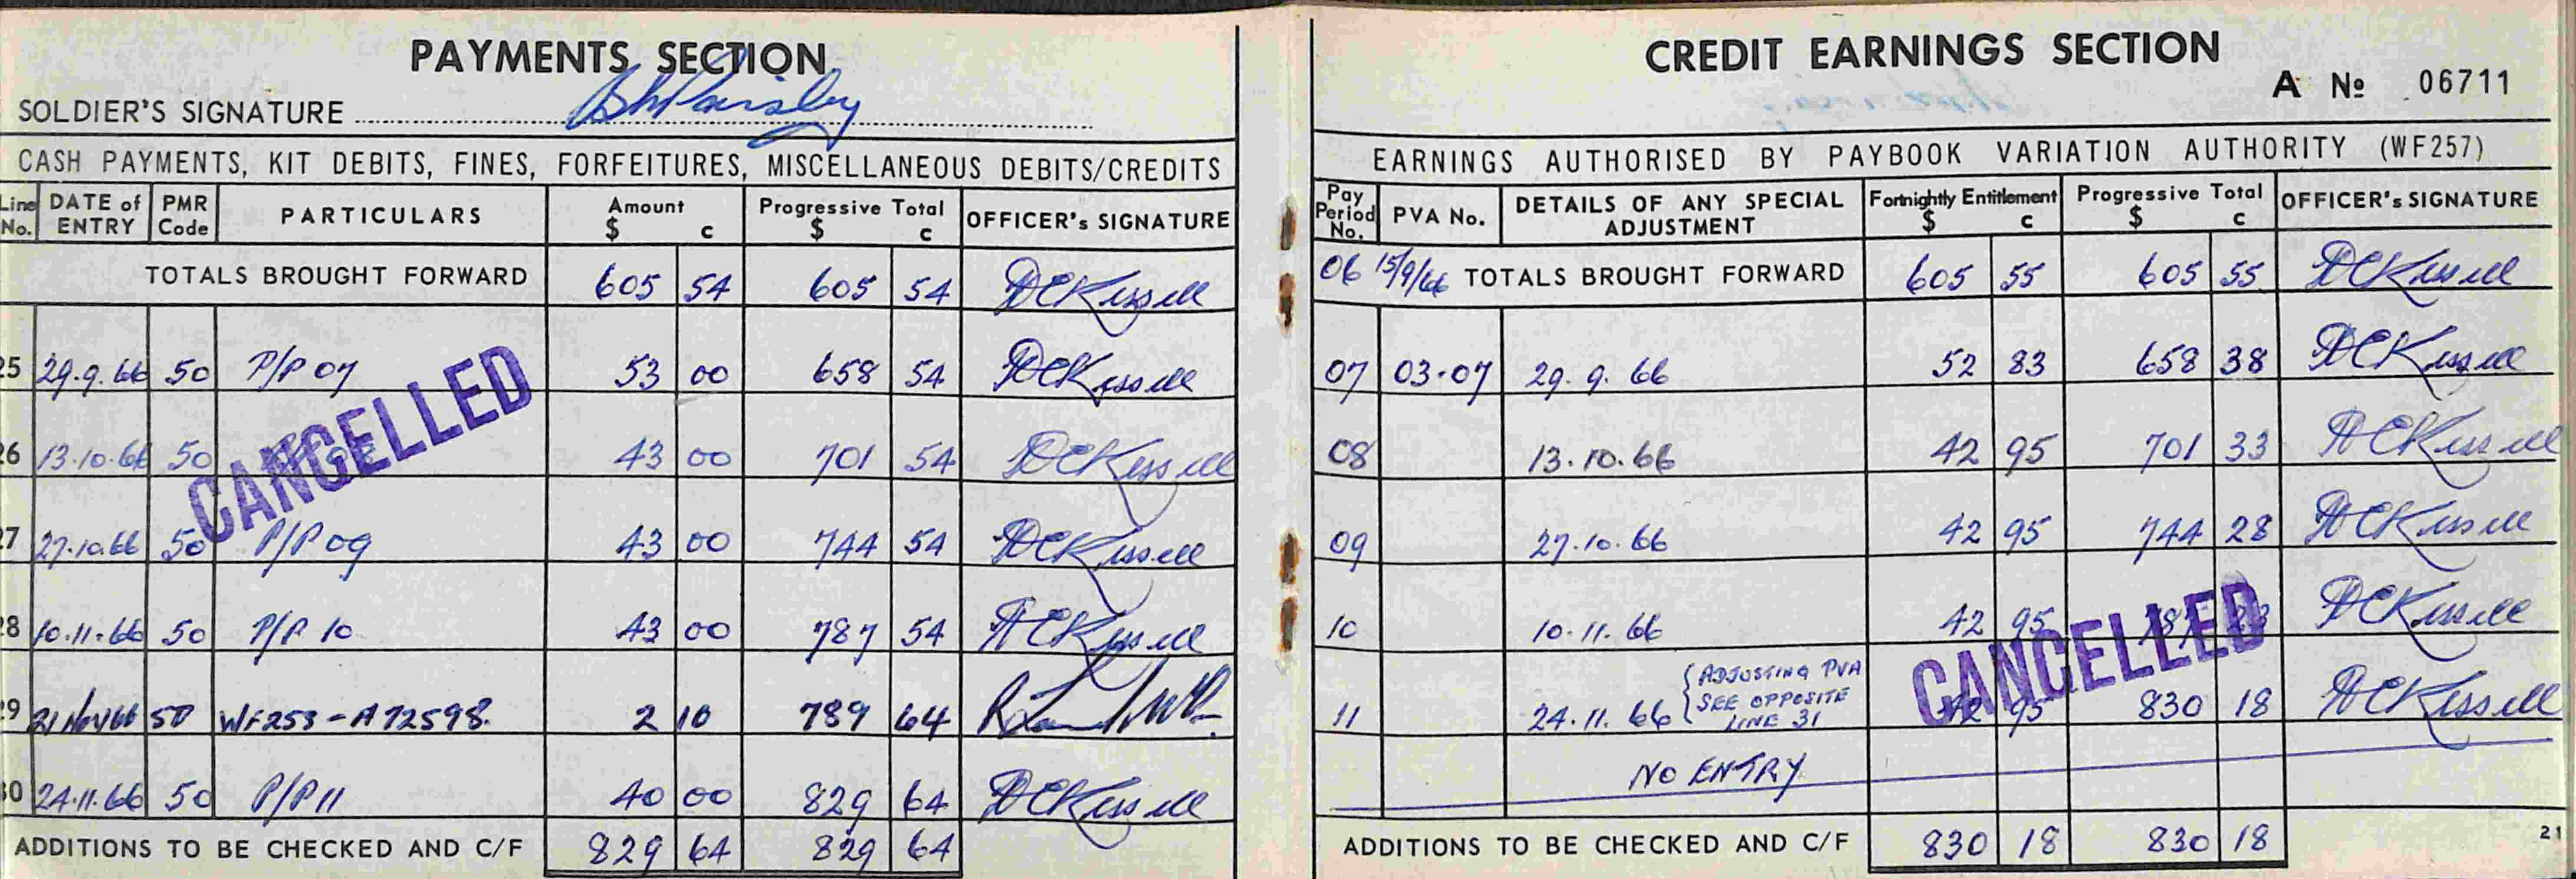 PAYMENTS SECTION
SOLDIER'S SIGNATURE
CASH PAYMENTS, KIT DEBITS, FINES, FORFEITURES, MISCELLANEOUS DEBITS/CREDITS
Line No. DATE of ENTRY PMR Code PARTICULARS Amount $ c Progressive Total $ c OFFICER's SIGNATURE
TOTALS BROUGHT FORWARD 605 54 605 54 DCKissell
25 29.9.66 50 P/P 07 53 00 658 54 DCKissell
26 13.10.66 50 43 00 701 54 DCKissell
27 27.10.66 50 P/P 09 43 00 744 54 DCKissell
28 10.11.66 50 P/P 10 43 00 787 54 DCKissell
29 21 Nov 66 50 WF253-A72598. 2 10 789 64
30 24.11.66 50 P/P 11 40 00 829 64 DCKissell
ADDITIONS TO BE CHECKED AND C/F 829 64 829 64
CANCELLED
CREDIT EARNINGS SECTION
A No 06711
EARNINGS AUTHORISED BY PAYBOOK VARIATION AUTHORITY (WF257)
Pay Period No. PVA No. DETAILS OF ANY SPECIAL ADJUSTMENT Fortnightly Entitlement $ c Progressive Total $ c OFFICER's SIGNATURE
06 15/9/66 TOTALS BROUGHT FORWARD 605 55 605 55 DCKissell
07 03-07 29.9.66 52 83 658 38 DCKissell
08 13.10.66 42 95 701 33 DCKissell
09 27.10.66 42 95 744 28 DCKissell
10 10.11.66 42 95 787 23 DCKissell
11 24.11.66 {ADJUSTING PVA SEE OPPOSITE LINE 31 42 95 830 18 DCKissell
NO ENTRY
ADDITIONS TO BE CHECKED AND C/F 830 18 830 18
CANCELLED
21